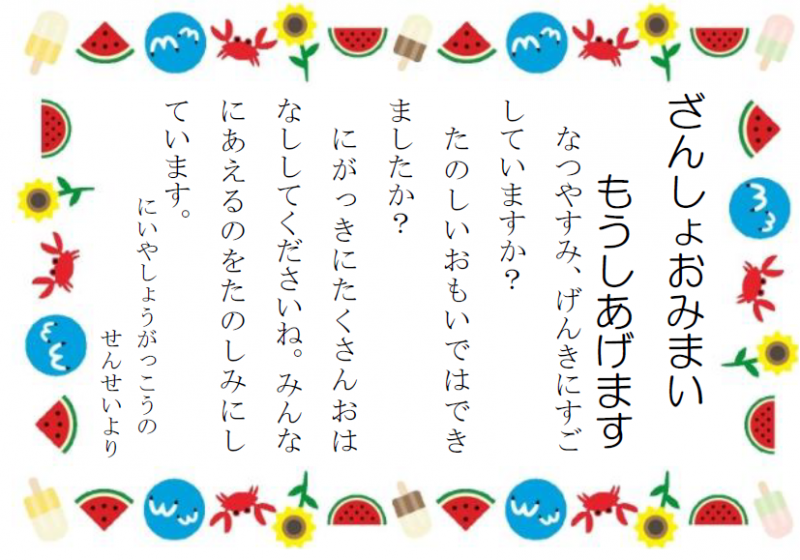 ざんしょおみまい
もうしあげます
なつやすみ、げんきにすご
していますか?
たのしいおもいではでき
ましたか?
にがっきにたくさんおは
なししてくださいね。みんな
にあえるのをたのしみにし
ています。
にいやしょうがっこうの
せんせいより